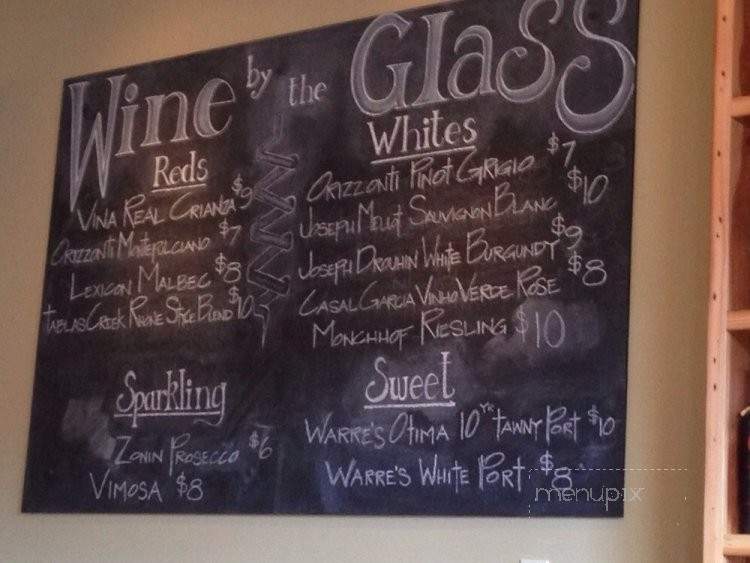 Wine by the GlasS
Reds
Vina Real Crianza $9
Orizzonti Montepulciano $7
Lexicon Malbec $8
Tablas Creek Rhone Style Blend $10
Whites
Orizzonti Pinot Grigio $7
Joseph Mellot Sauvignon Blanc $10
Joseph Drouhin White Burgundy $9
Casal Garcia Vinho Verde Rose $8
Monchhof Riesling $10
Sparkling
Zonin Prosecco $6
Vimosa $8
Sweet
Warre's Otima 10 Yr Tawny Port $10
Warre's White Port $8
menupix